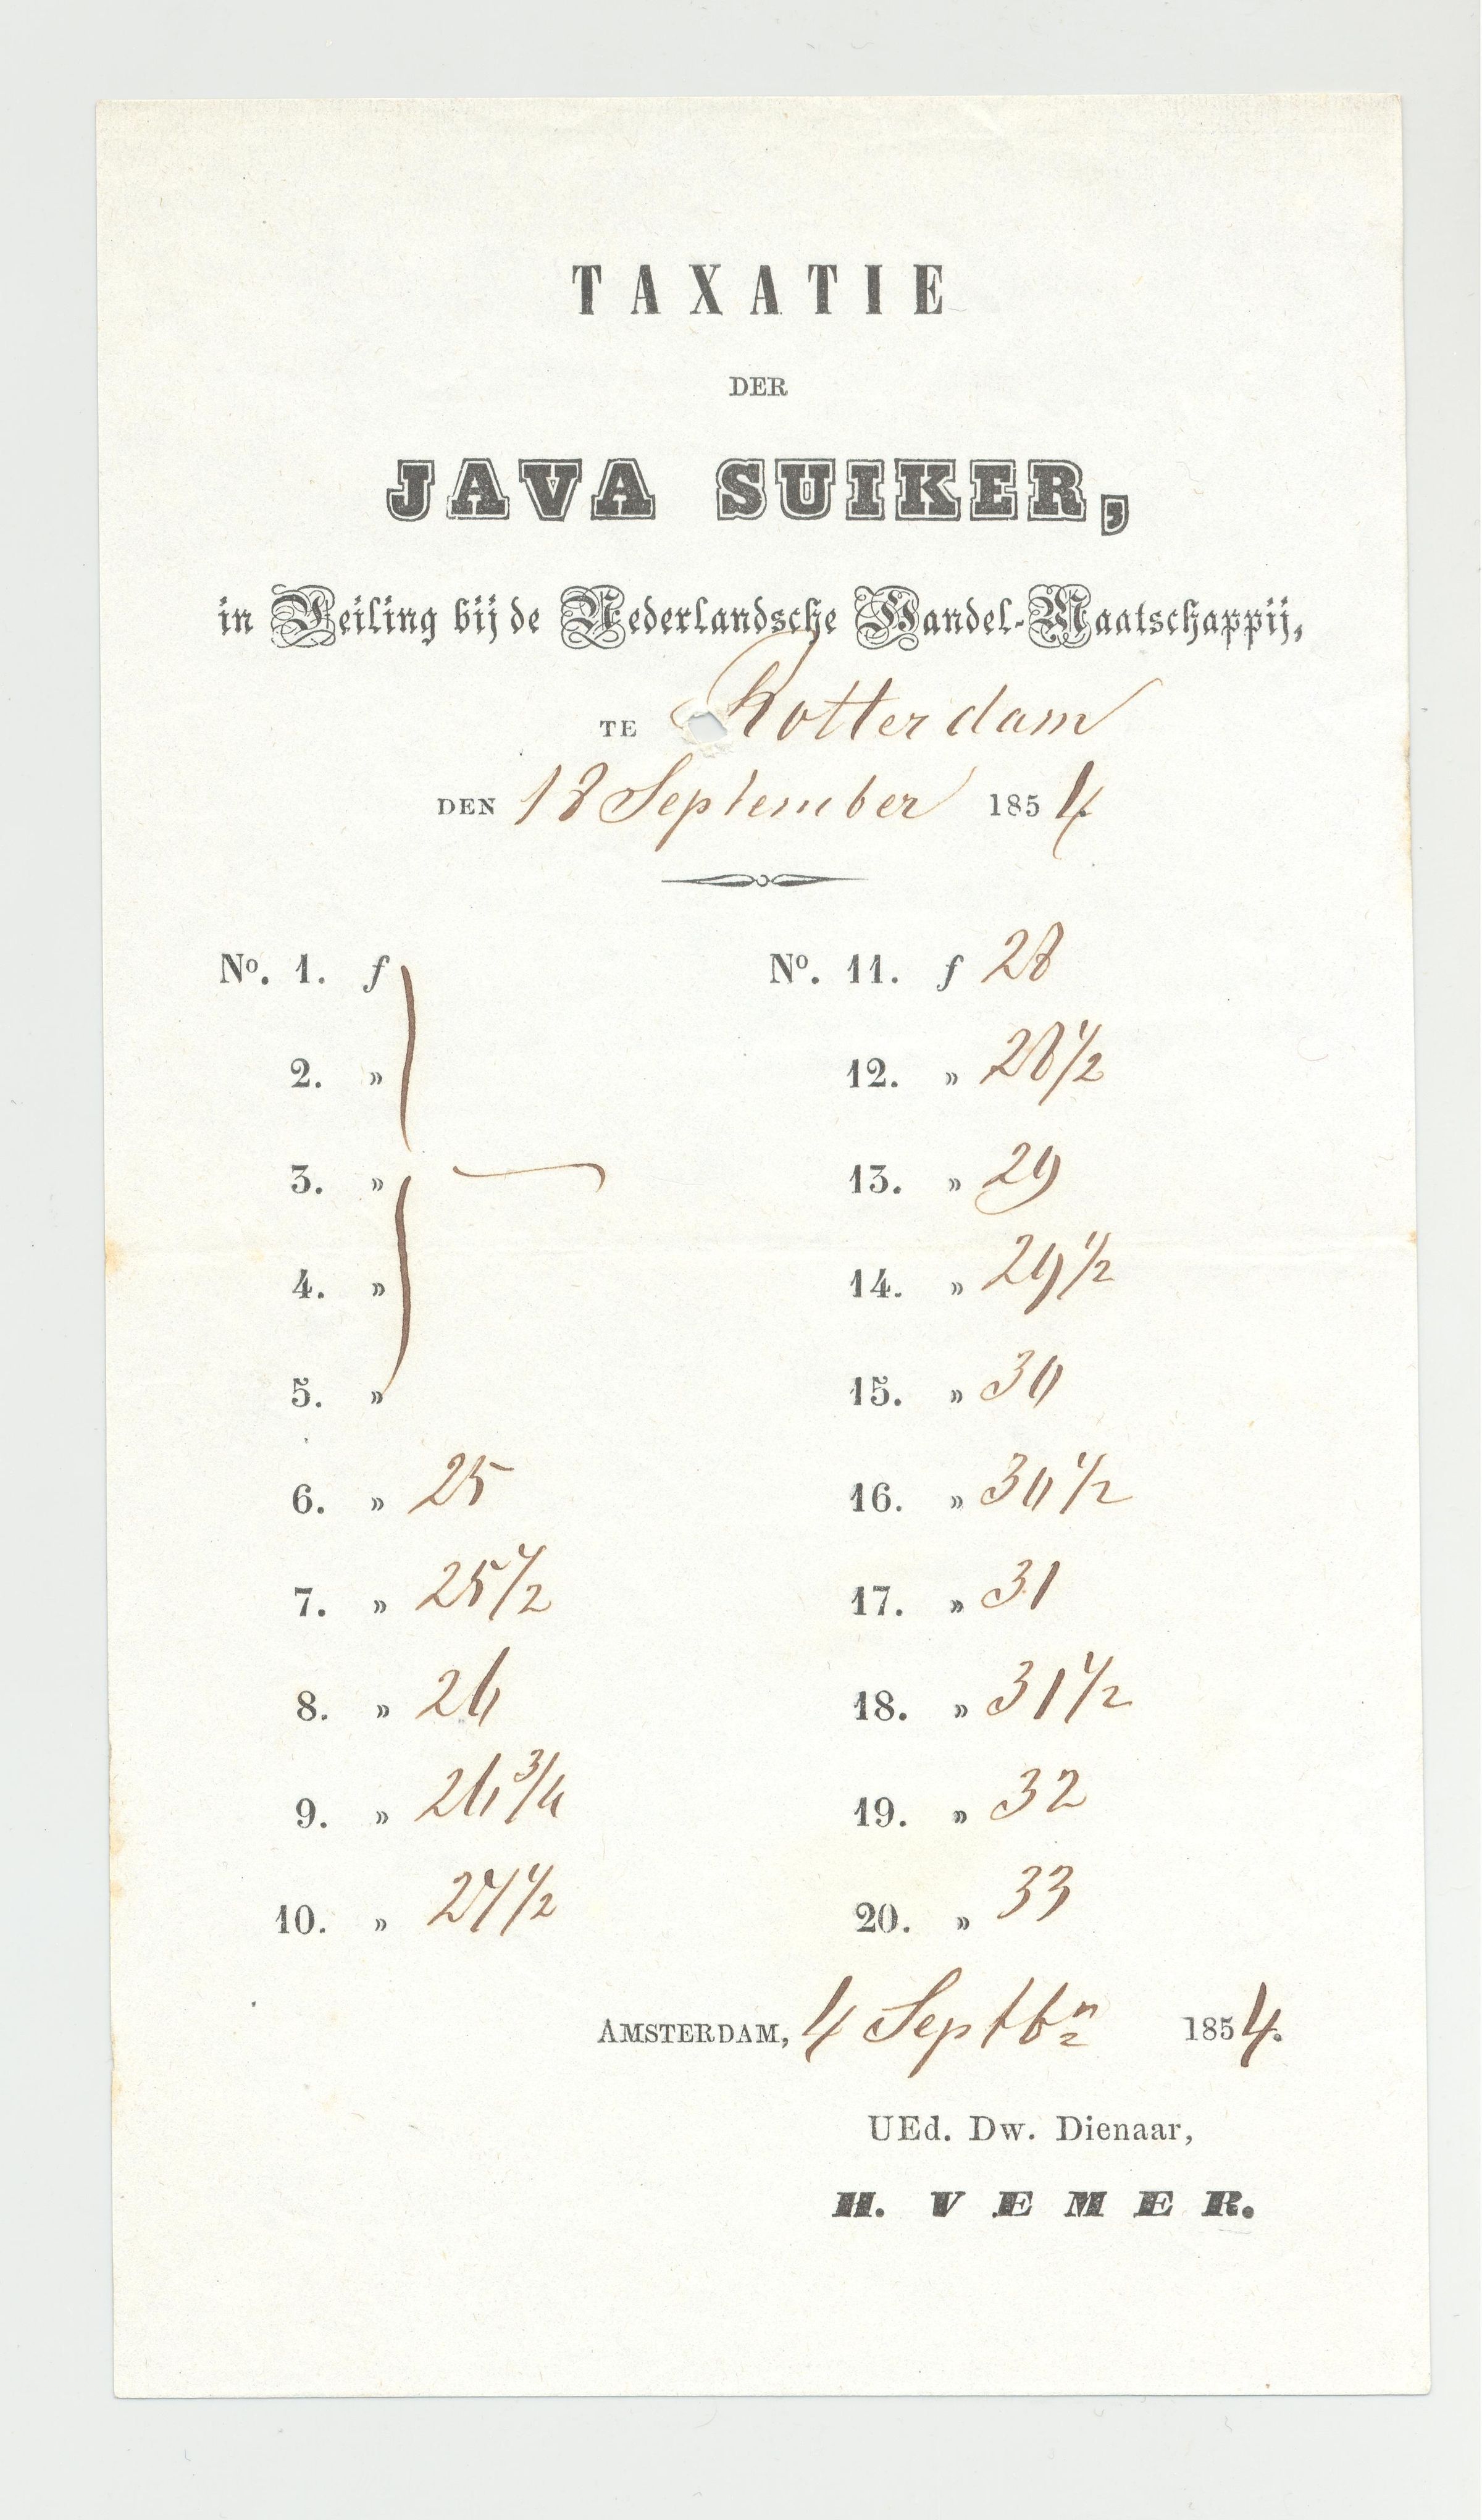 TAXATIE
DER
JAVA SUIKER,
in Veiling bij de Nederlandsche Handel-Maatschappij,
TE Rotterdam
DEN 18 September 1854
No. 1. f
2. »
3. » —
4. »
5. »
6. » 25
7. » 25 1/2
8. » 26
9. » 26 3/4
10. » 27 1/2
No. 11. f 28
12. » 28 1/2
13. » 29
14. » 29 1/2
15. » 30
16. » 30 1/2
17. » 31
18. » 31 1/2
19. » 32
20. » 33
AMSTERDAM, 4 Septbr 1854.
UEd. Dw. Dienaar,
H. VEMER.